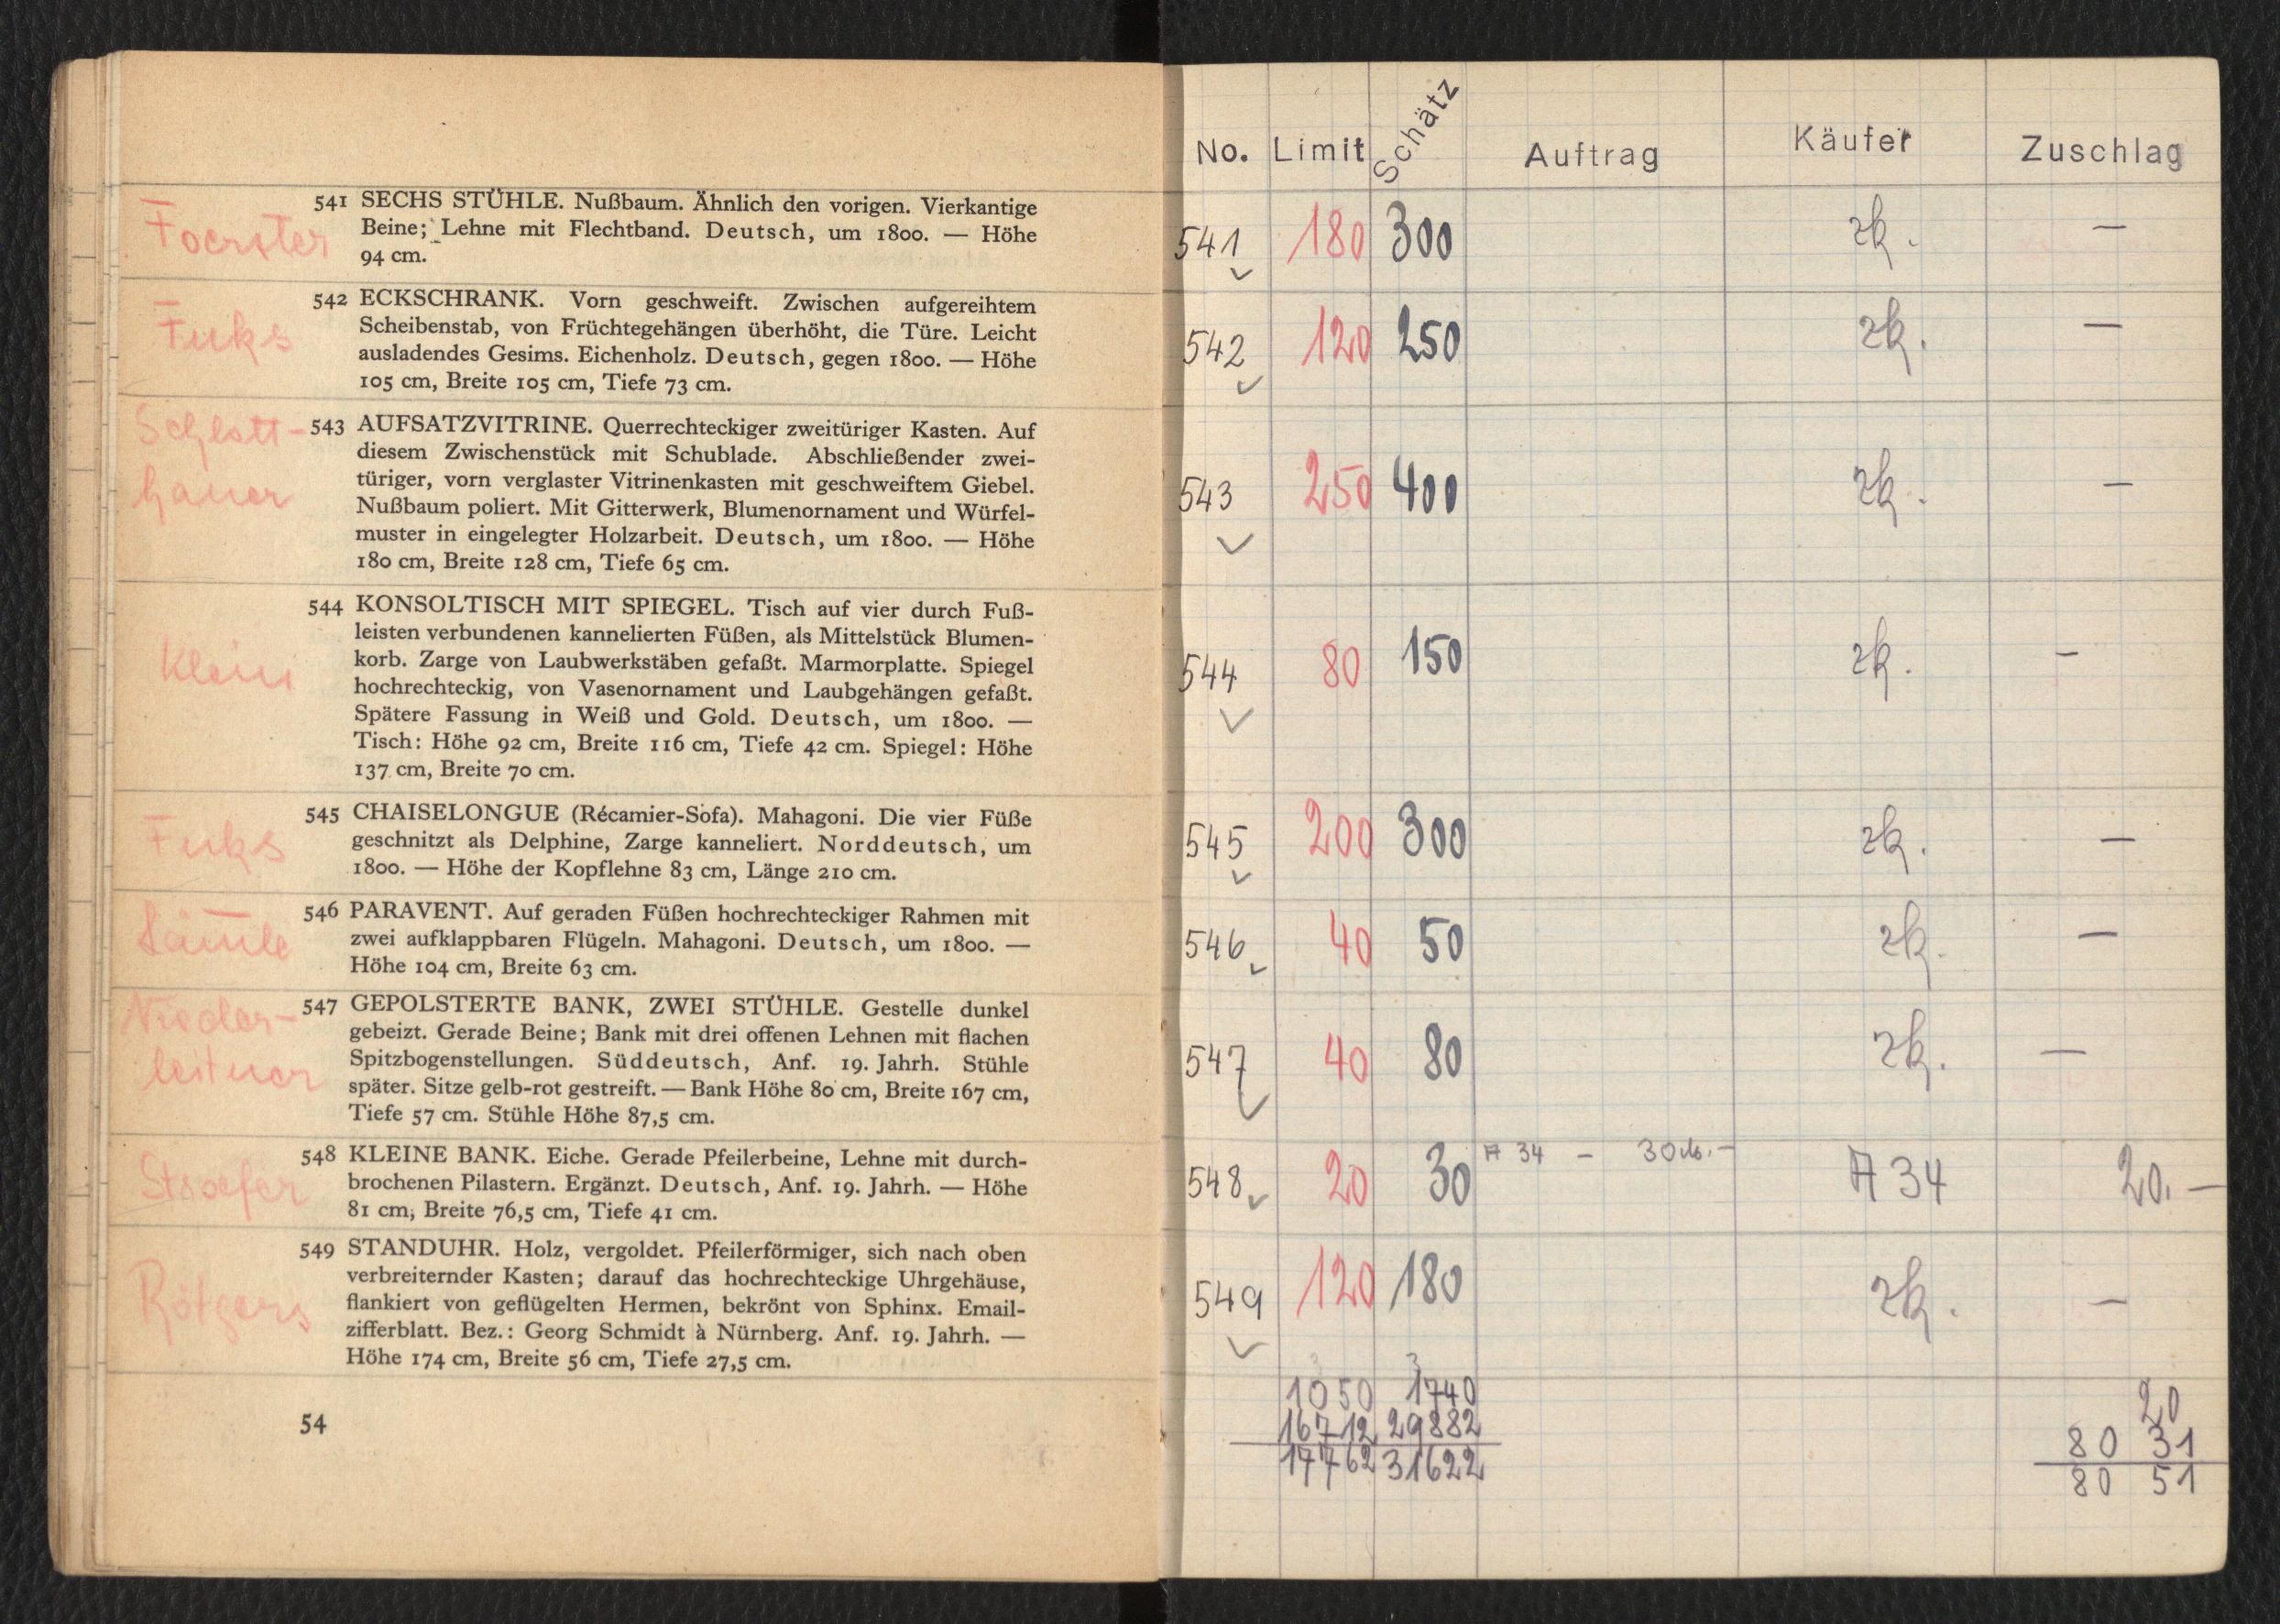 Foerster
541 SECHS STÜHLE. Nußbaum. Ähnlich den vorigen. Vierkantige
Beine; Lehne mit Flechtband. Deutsch, um 1800. — Höhe
94 cm.
Fuks
542 ECKSCHRANK. Vorn geschweift. Zwischen aufgereihtem
Scheibenstab, von Früchtegehängen überhöht, die Türe. Leicht
ausladendes Gesims. Eichenholz. Deutsch, gegen 1800. — Höhe
105 cm, Breite 105 cm, Tiefe 73 cm.
Schlott-
hauer
543 AUFSATZVITRINE. Querrechteckiger zweitüriger Kasten. Auf
diesem Zwischenstück mit Schublade. Abschließender zwei-
türiger, vorn verglaster Vitrinenkasten mit geschweiftem Giebel.
Nußbaum poliert. Mit Gitterwerk, Blumenornament und Würfel-
muster in eingelegter Holzarbeit. Deutsch, um 1800. — Höhe
180 cm, Breite 128 cm, Tiefe 65 cm.
Klein
544 KONSOLTISCH MIT SPIEGEL. Tisch auf vier durch Fuß-
leisten verbundenen kannelierten Füßen, als Mittelstück Blumen-
korb. Zarge von Laubwerkstäben gefaßt. Marmorplatte. Spiegel
hochrechteckig, von Vasenornament und Laubgehängen gefaßt.
Spätere Fassung in Weiß und Gold. Deutsch, um 1800. —
Tisch: Höhe 92 cm, Breite 116 cm, Tiefe 42 cm. Spiegel: Höhe
137 cm, Breite 70 cm.
Fuks
545 CHAISELONGUE (Récamier-Sofa). Mahagoni. Die vier Füße
geschnitzt als Delphine, Zarge kanneliert. Norddeutsch, um
1800. — Höhe der Kopflehne 83 cm, Länge 210 cm.
546 PARAVENT. Auf geraden Füßen hochrechteckiger Rahmen mit
zwei aufklappbaren Flügeln. Mahagoni. Deutsch, um 1800. —
Höhe 104 cm, Breite 63 cm.
Nieder-
leitner
547 GEPOLSTERTE BANK, ZWEI STÜHLE. Gestelle dunkel
gebeizt. Gerade Beine; Bank mit drei offenen Lehnen mit flachen
Spitzbogenstellungen. Süddeutsch, Anf. 19. Jahrh. Stühle
später. Sitze gelb-rot gestreift. — Bank Höhe 80 cm, Breite 167 cm,
Tiefe 57 cm. Stühle Höhe 87,5 cm.
Stroefer
548 KLEINE BANK. Eiche. Gerade Pfeilerbeine, Lehne mit durch-
brochenen Pilastern. Ergänzt. Deutsch, Anf. 19. Jahrh. — Höhe
81 cm, Breite 76,5 cm, Tiefe 41 cm.
Rötgers
549 STANDUHR. Holz, vergoldet. Pfeilerförmiger, sich nach oben
verbreiternder Kasten; darauf das hochrechteckige Uhrgehäuse,
flankiert von geflügelten Hermen, bekrönt von Sphinx. Email-
zifferblatt. Bez.: Georg Schmidt à Nürnberg. Anf. 19. Jahrh. —
Höhe 174 cm, Breite 56 cm, Tiefe 27,5 cm.
54
No. Limit Schätz Auftrag Käufer Zuschlag
541 180 300 zk. —
542 120 250 zk. —
543 250 400 zk. —
544 80 150 zk. —
545 200 300 zk. —
546 40 50 zk. —
547 40 80 zk. —
548 20 30 A 34 – 30 M.– A 34 20.—
549 120 180 zk. —
1050 1740 20
16712 29882 80 31
17762 31622 80 51